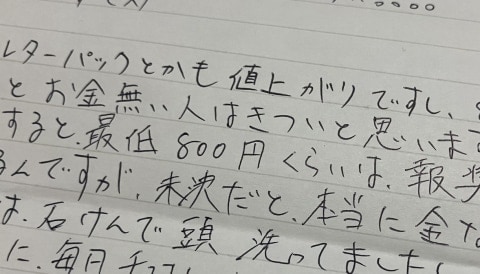 レターパックとかも値上がりですし、
とお金無い人はきついと思います
すると、最低800円くらいは、報奨
るんですが、未決だと、本当に金な
は、石けんで頭洗ってましたし
に、毎月